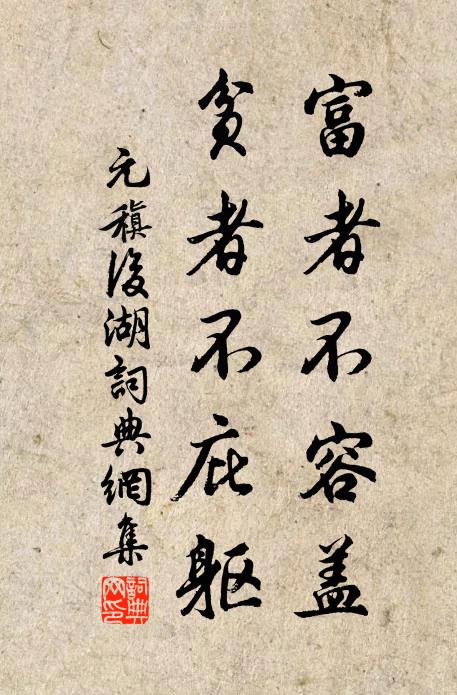 富者不容盖
貧者不庇軀
元稹後湖詞典網集
詞典網印